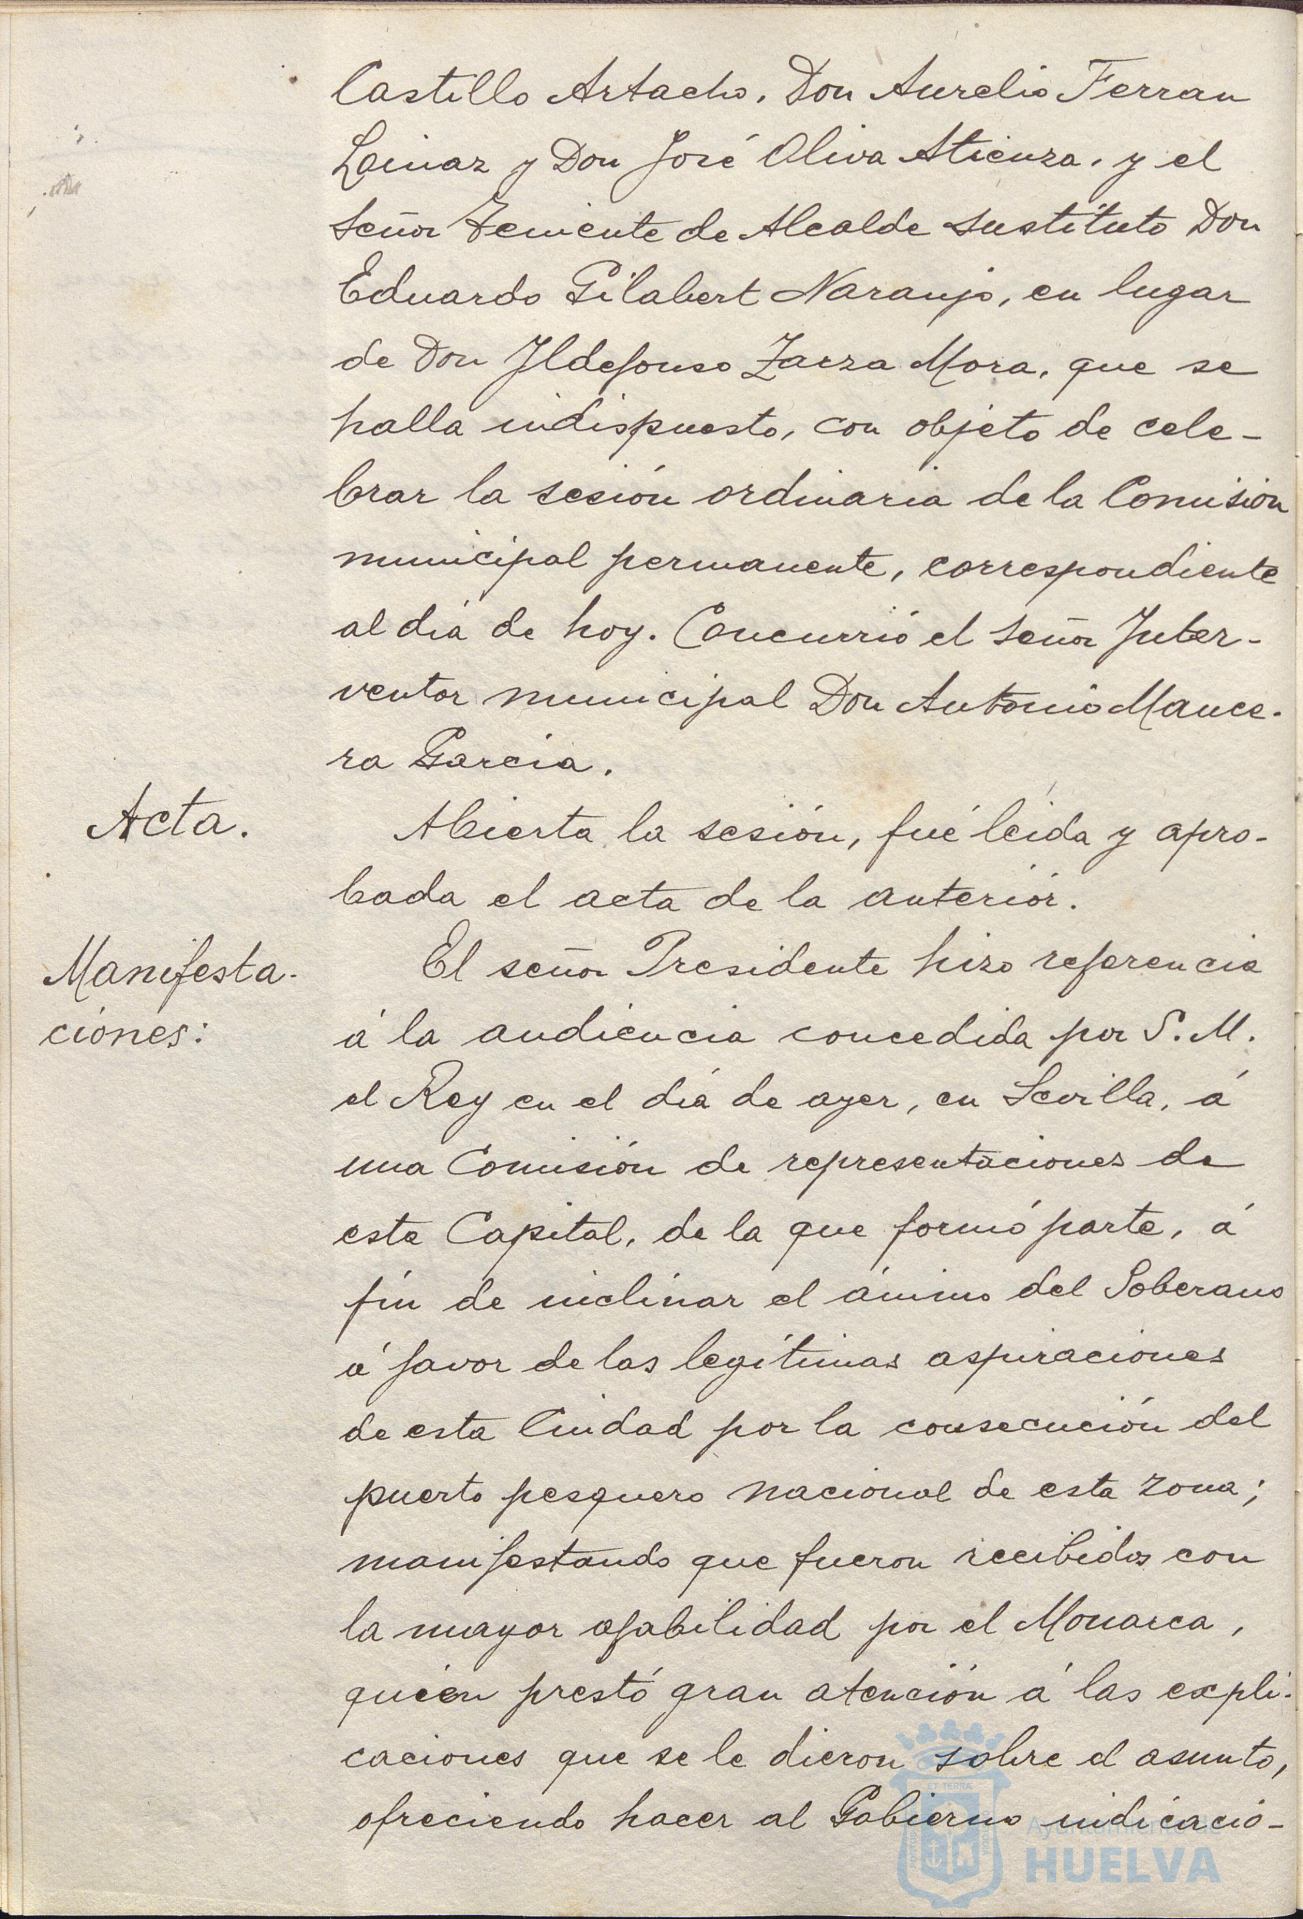 Castillo Artacho, Don Aurelio Ferran
Lainaz y Don José Oliva Atienza, y el
Señor Teniente de Alcalde sustituto Don
Eduardo Gilabert Naranjo, en lugar
de Don Yldefonso Zarza Mora, que se
halla indispuesto, con objeto de cele-
brar la sesión ordinaria de la Comisión
municipal permanente, correspondiente
al día de hoy. Concurrió el Señor Inter-
ventor municipal Don Antonio Mance-
ra Garcia.
Acta.
Abierta la sesión, fué leida y apro-
bada el acta de la anterior.
Manifesta-
ciones:
El señor Presidente hizo referencia
á la audiencia concedida por S. M.
el Rey en el día de ayer, en Sevilla, á
una Comisión de representaciones de
esta Capital, de la que formó parte, á
fin de inclinar el ánimo del Soberano
á favor de las legítimas aspiraciones
de esta Ciudad por la consecución del
puerto pesquero nacional de esta zona;
manifestando que fueron recibidos con
la mayor afabilidad por el Monarca,
quien prestó gran atención á las expli-
caciones que se le dieron sobre el asunto,
ofreciendo hacer al Gobierno indicacio-
Ayuntamiento de
HUELVA